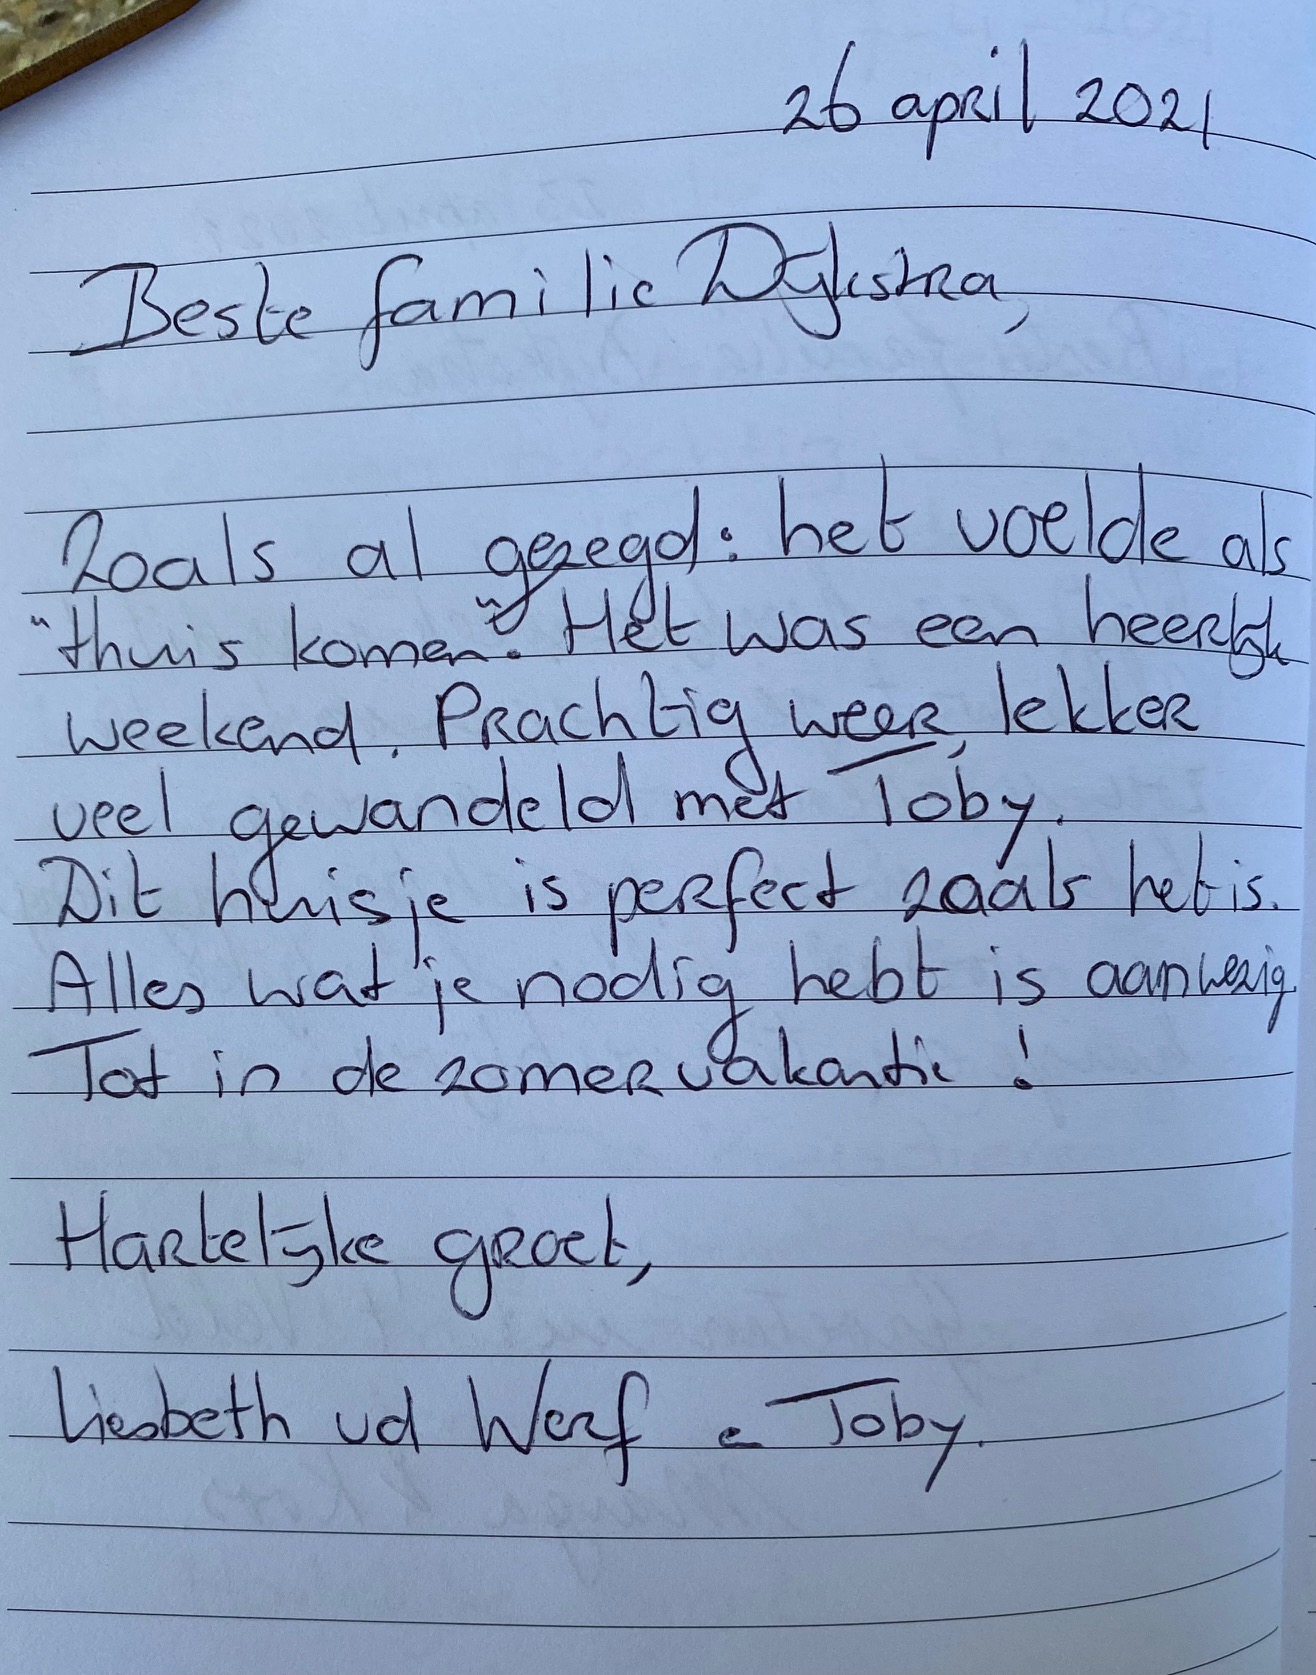 26 april 2021
Beste familie Dijkstra,
Zoals al gezegd: het voelde als
"thuis komen". Het was een heerlijk
weekend. Prachtig weer, lekker
veel gewandeld met Toby.
Dit huisje is perfect zoals het is.
Alles wat je nodig hebt is aanwezig
Tot in de zomervakantie!
Hartelijke groet,
Liesbeth vd Werf e Toby.